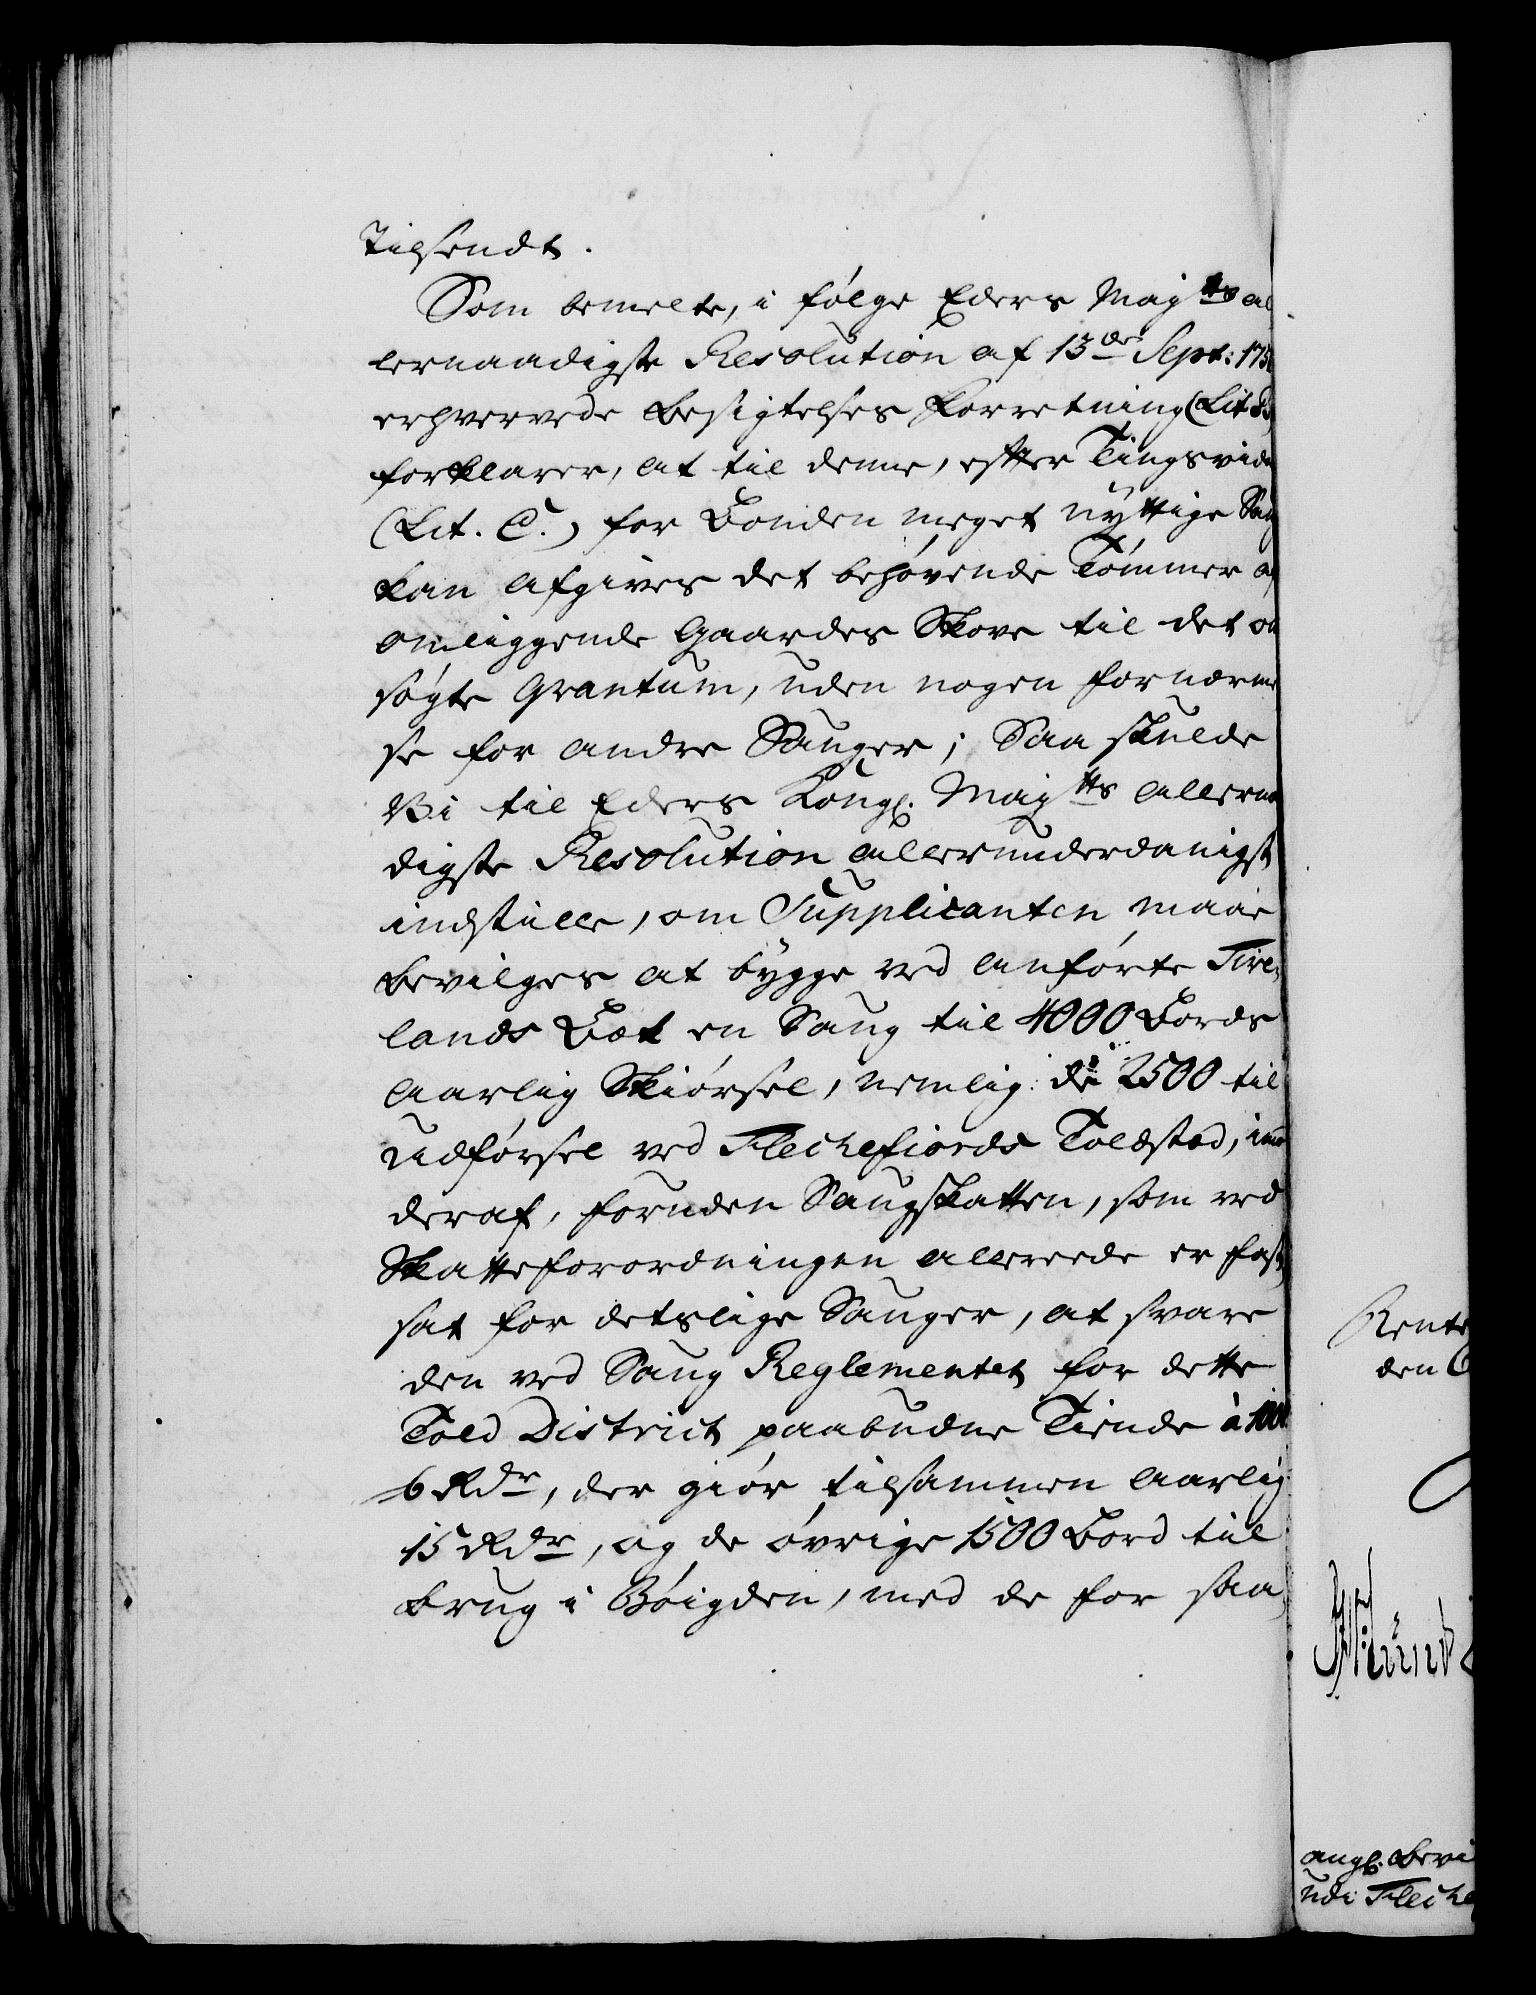 tilsendt.
Som bemelte, i følge Eders Maj:ts al
lernaadigste Resolution af 13de Sept: 175
erhvervede Besigtelses Forretning (Lit
forklarer, at til denne, efter Tingsvid
(Lit. C.) for Bonden meget nyttige Saug
kan afgives det behøvende Tømmer af
omliggende Gaardes Skove til det an
søgte Qvantum, uden nogen fornærme
se for andre Sauger; Saa skulde
Vi til Eders Kongl. Maj:ts allernaa
digste Resolution allerunderdanigst
indstille, om Supplicanten maae
bevilges at bygge ved anførte Tire-
lands Bæk en Saug til 4000 Bords
aarlig Skiørsel, nemlig: de 2500 til
udførsel ved Fleckefiords Toldsted, imod
deraf, foruden Saugskatten, som ved
Skatteforordningen allereede er fast
sat for deslige Sauger, at svare
den ved Saug Reglementet for dette
Told District paabudne Tiende à 1000
6 Rdr, der giør tilsammen aarlig
15 Rdr, og de øvrige 1500 Bord til
brug i Bøigden, med de for saa
Rente
den
angl. Bevi
udi Flecke